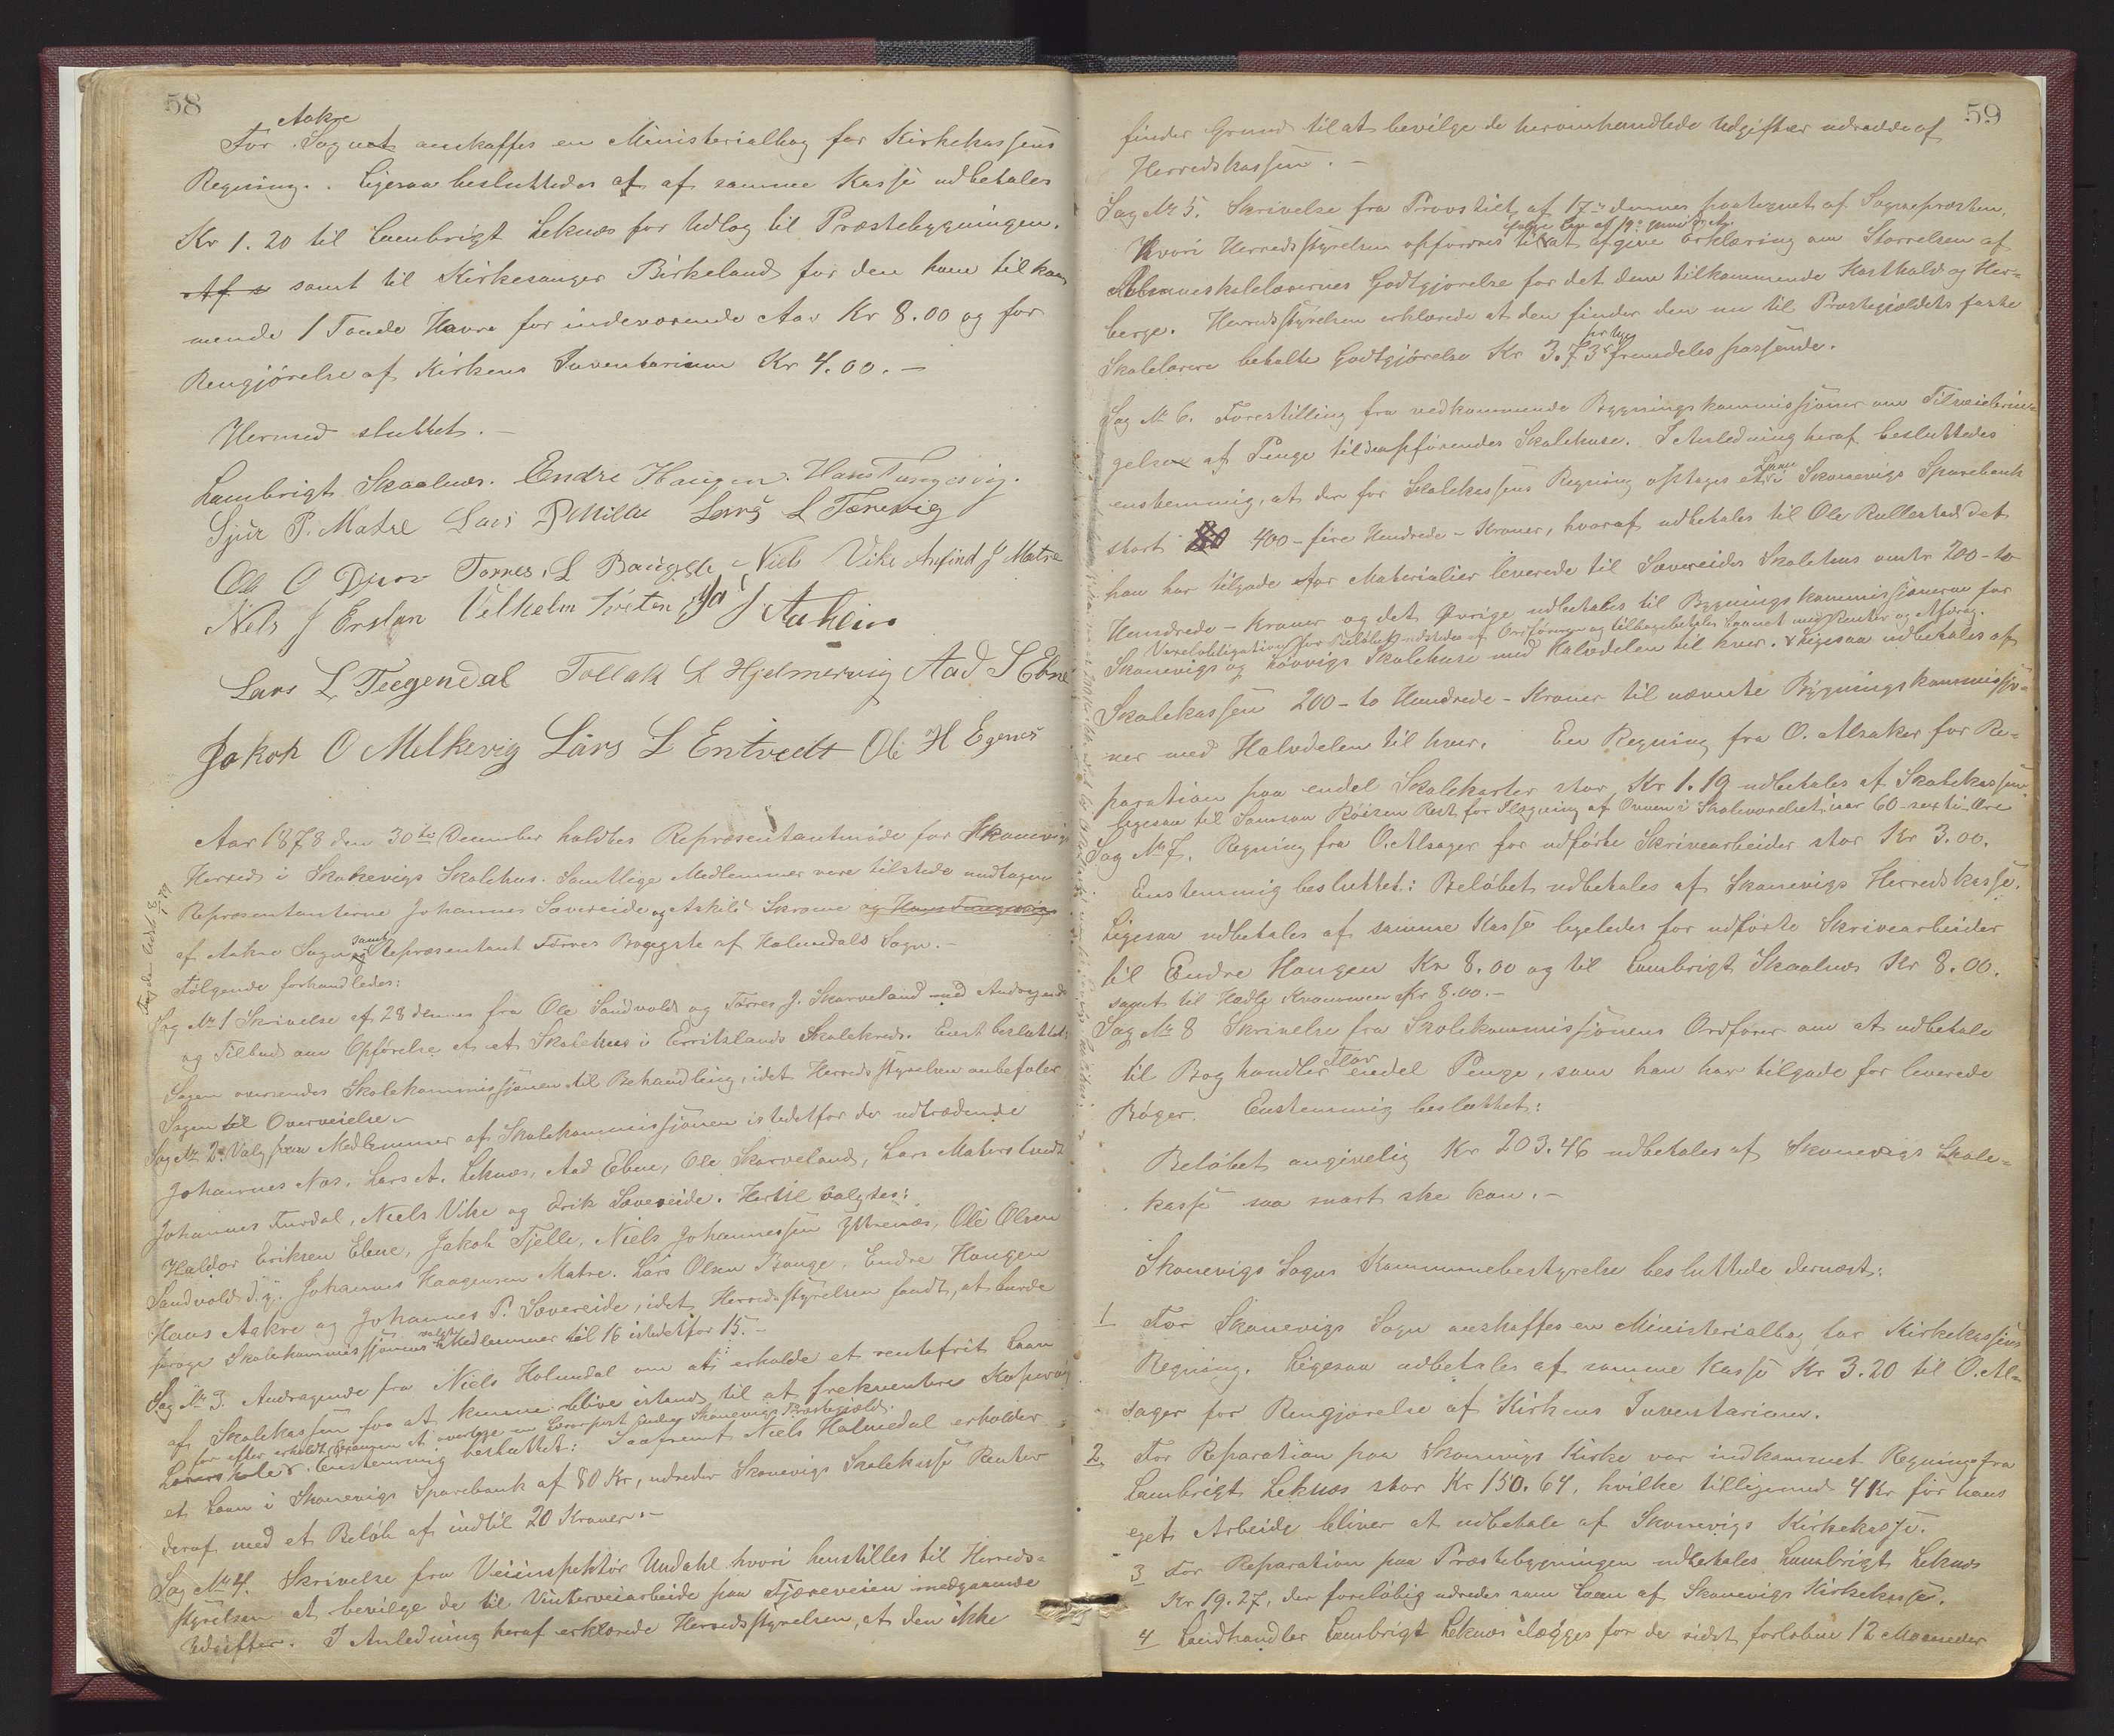 58
Aakre
For Sognet anskaffes en Ministerialbog for Kirkekassens
Regning. Ligesaa besluttedes at af samme Kasse udbetales
Kr 1.20 til Lambrigt Leknæs for Udlæg til Præstebygningen.
samt til Kirkesanger Birkeland for den ham tilkom
mende 1 Tønde Havre for indeværende Aar Kr 8.00 og for
Rengjørelse af Kirkens Inventarium Kr 4.00. –
Hermed sluttet. –
Lambrigt Skaalnæs. Endre Haugen. Hans Tungesvig.
Sjur P. Matre Lars P Milde Lars L Tærevig
Ole O Djuv Tørres L Baugste Niels Vike Arfind J Matre
Nels J Ersland Vilhelm Tveten J Aaheim
Lars L Teegendal Tollak L Hjelmervig Aad S Ebne
Jakob O Melkevig Lars L Entvedt Ole H Egenes
Aar 1878 den 30te December holdtes Repræsentantmøde for Skonevigs
Herred i Skonevigs Skolehus. Samtlige Medlemmer vare tilstede undtagen
Repræsentanterne Johannes Sævereide og Askild Skrome og Hans Tungesvig
af Aakre Sogn samt Repræsentant Tørres Bogyste af Holmdals Sogn. –
Følgende forhandledes:
Sag No 1 Skrivelse af 28 dennes fra Ole Sandvold og Tørres J. Skorveland med Andragende
og Tilbud om Opførelse at et Skolehus i Erritslands Skolekreds. Eenst besluttet:
Sagen oversendes Skolekommissjonen til Behandling, idet Herredsstyrelsen anbefaler
Sagen til Overveielse. –
Sag No 2. Valg paa Medlemmer af Skolekommissjonen istedetfor de udtrædende
Johannes Næs, Lars A. Leknæs, Aad Ebne, Ole Skorveland, Lars Matres
Johannes Furdal, Niels Vike og Erik Sævereide. Hertil valgtes:
Haldor Eriksen Ebne, Jakob Fjelle, Niels Johannessen Ytrenæs, Ole Olsen
Sandvold d.y. Johannes Haagensen Matre. Lars Olsen Bauge, Endre Haugen
Hans Aakre og Johannes P. Sævereide, idet Herredsstyrelsen fandt, at burde
forøge Skolekommissjonens valgte Medlemmer til 16 istedetfor 15. –
Sag No 3. Andragende fra Niels Holmdal om at erholde et rentefrit Laan
af Skolekassen for at kunne blive istand til at frekventere
for efter erholdt Examen at overtage en Lærerpost inden Skonevigs Præstegjæld.
Lærerskole. Eenstemmig besluttet: Saafremt Niels Holmedal erholder
et Laan i Skonevigs Sparebank af 80 Kr, udreder Skonevigs Skolekasse Renter
deraf med et Beløb af indtil 20 Kroner. –
Sag No 4. Skrivelse fra Veiinspektør Undahl hvori henstilles til Herreds-
styrelsen at bevilge de til Vinterveiarbeide paa Fjæreveien medgaaende
Udgifter. I Anledning heraf erklærede Herredsstyrelsen, at den ikke
59
finder Grund til at bevilge de heromhandlede Udgifter udredede af
Herredskassen. –
Sag No 5. Skrivelse fra Provstiet af 17de dennes paategnet af Sognepræsten,
hvori Herredsstyrelsen opfordres til at afgive Erklæring om Størrelsen af
Almueskolelærernes Godtgjørelse for det dem tilkommende Kosthold og Her-
berge. Herredsstyrelsen erklærede at den finder den nu til Præstegjældets faste
Skolelærere betalte Godtgjørelse Kr 3.73 pr Uge fremdeles passende.
Sag No 6. Forestilling fra vedkommende Bygningskommissjoner om Tilveiebrin-
gelsen af Penge til de opførendes Skolehuse. I Anledning heraf besluttedes
enstemmig, at der for Skolekassens Regning optages et Laan i Skonevigs Sparebank
stort 400 – fire Hundrede – Kroner, hvoraf udbetales til Ole Rullestad det
han har tilgode for Materialier leverede til Sævereides Skolehus omtr 200 – to
Hundrede – Kroner og det Øvrige udbetales til Bygningskommissjonerne for
Vexelobligation for Beløbet udstedes af Ordføreren og tilbagebetales Laanet med Renter og Afdrag.
Skonevigs og Løvvigs Skolehuse med Halvdelen til hver. Ligesaa udbetales af
Skolekassen 200 – to Hundrede – Kroner til nævnte Bygningskommissjo-
ner med Halvdelen til hver. En Regning fra O. Alsaker for Re-
paration paa endel Skolekarter stor Kr 1.19 udbetales af Skolekassen
ligesaa til Samson Røisen Rest for Flægning af Ovnen i Skoleværelset 60 – sexti – Øre
Sag No 7. Regning fra O. Alsager for udførte Skrivearbeider stor Kr 3.00.
Enstemmig besluttet: Beløbet udbetales af Skonevigs Herredskasse.
Ligesaa udbetales af samme Kasse ligeledes for udførte Skrivearbeider
til Endre Haugen Kr 8.00 og til Lambrigt Skaalnæs Kr 8.00.
samt til Hadle Kr 8.00. –
Sag No 8 Skrivelse fra Skolekommissjonens Ordfører om at udbetale
til Boghandler Flor endel Penge, som han har tilgode for leverede
Bøger. Enstemmig besluttet:
Beløbet angivelig Kr 203.46 udbetales af Skonevigs Skole-
kasse saa snart ske kan. –
Skonevigs Sogns Kommunebestyrelse besluttede dernæst:
1 For Skonevigs Sogn anskaffes en Ministerialbog for Kirkekassens
Regning. Ligesaa udbetales af samme Kasse Kr 3.20 til O. Al-
sager for Rengjørelse af Kirkens Inventarium.
2 For Reparation paa Skonevigs Kirke var indkommet Regning fra
Lambrigt Leknæs stor Kr 150.64, hvilke tilligemed 4 Kr for hans
eget Arbeide bliver at udbetale af Skonevigs Kirkekasse.
3 For Reparation paa Præstebygningen udbetales Lambrigt Leknæs
Kr 19.27, der foreløbig udredes som Laan af Skonevigs Kirkekasse.
4 Landhandler Lambrigt Leknæs ilægges for de sidst forløbne 12 Maaneder